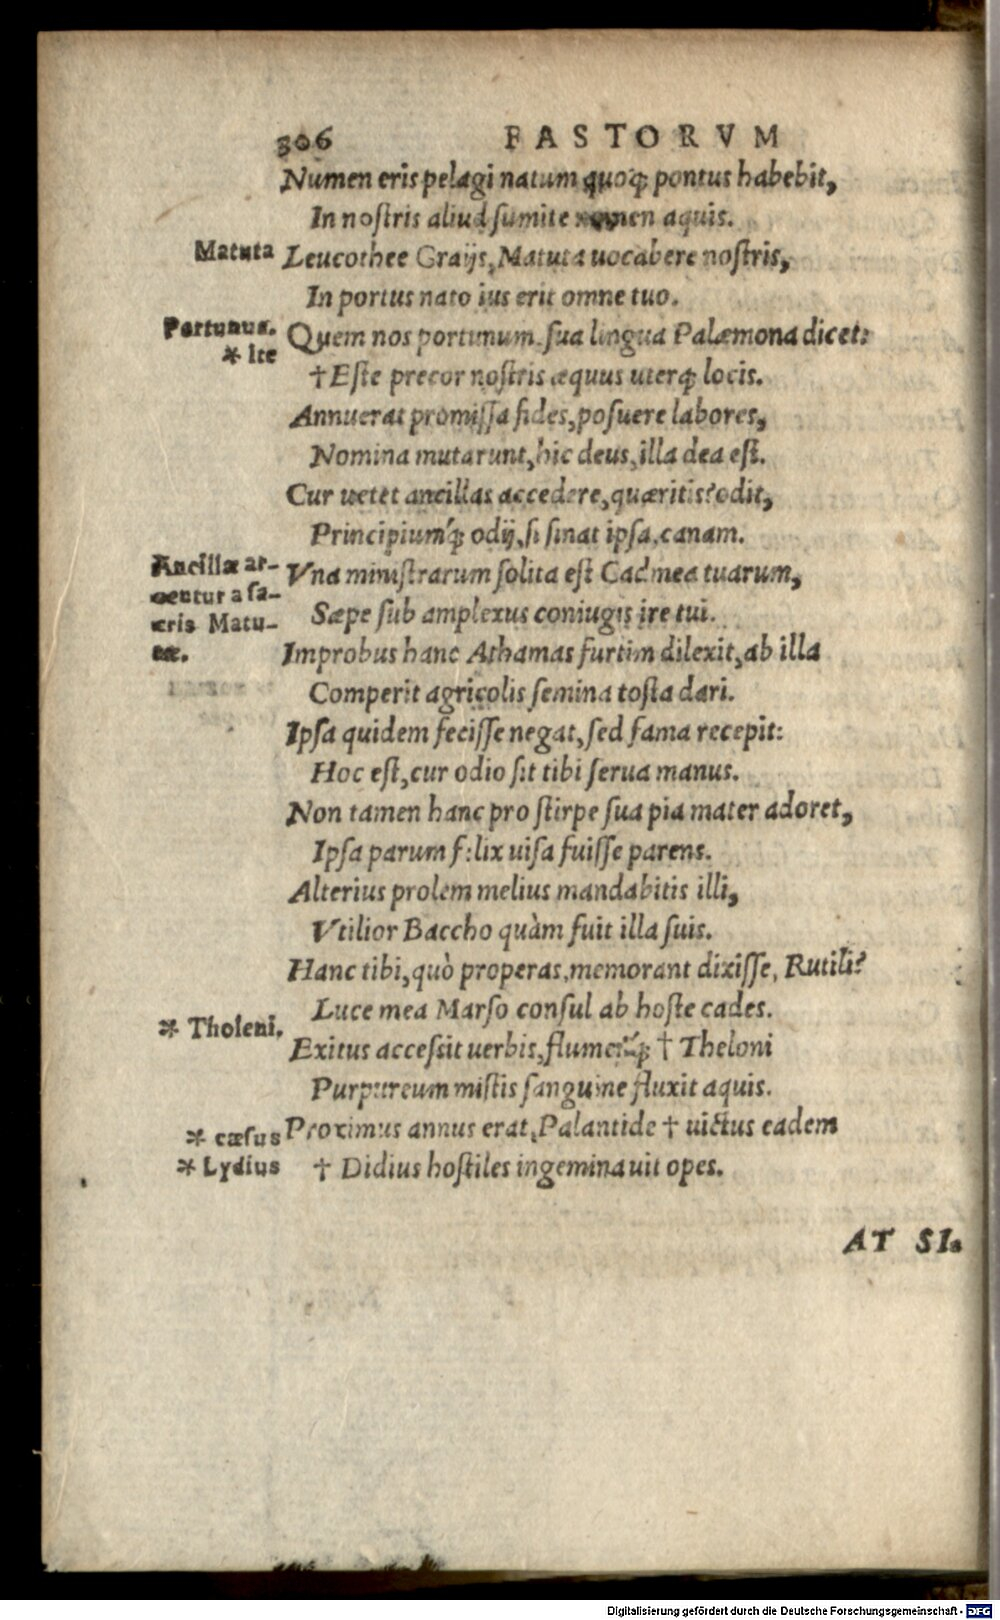 306 FASTORVM
Numen eris pelagi natum quoq́; pontus habebit,
In nostris aliud sumite nomen aquis.
Matuta
Leucothee Graijs, Matuta uocabere nostris,
In portus nato ius erit omne tuo.
Portunus.
Quem nos portunum, sua lingua Palæmona dicet:
* Ite
† Este precor nostris æquus uterq́; locis.
Annuerat promissa fides, posuere labores,
Nomina mutarunt, hic deus, illa dea est.
Cur uetet ancillas accedere, quæritis? odit,
Principiumq́; odij, si sinat ipsa, canam.
Ancillæ ar-
centur a sa-
cris Matu-
tæ.
Vna ministrarum solita est Cadmea tuarum,
Sæpe sub amplexus coniugis ire tui.
Improbus hanc Athamas furtim dilexit, ab illa
Comperit agricolis semina tosta dari.
Ipsa quidem fecisse negat, sed fama recepit:
Hoc est, cur odio sit tibi serua manus.
Non tamen hanc pro stirpe sua pia mater adoret,
Ipsa parum felix uisa fuisse parens.
Alterius prolem melius mandabitis illi,
Vtilior Baccho quàm fuit illa suis.
Hanc tibi, quò properas, memorant dixisse, Rutili?
Luce mea Marso consul ab hoste cades.
* Tholeni.
Exitus accessit uerbis, flumenq́; † Theloni
Purpureum mistis sanguine fluxit aquis.
* cæsus
Proximus annus erat, Palantide † uictus eadem
* Lydius
† Didius hostiles ingeminauit opes.
AT SI.
Digitalisierung gefördert durch die Deutsche Forschungsgemeinschaft - DFG